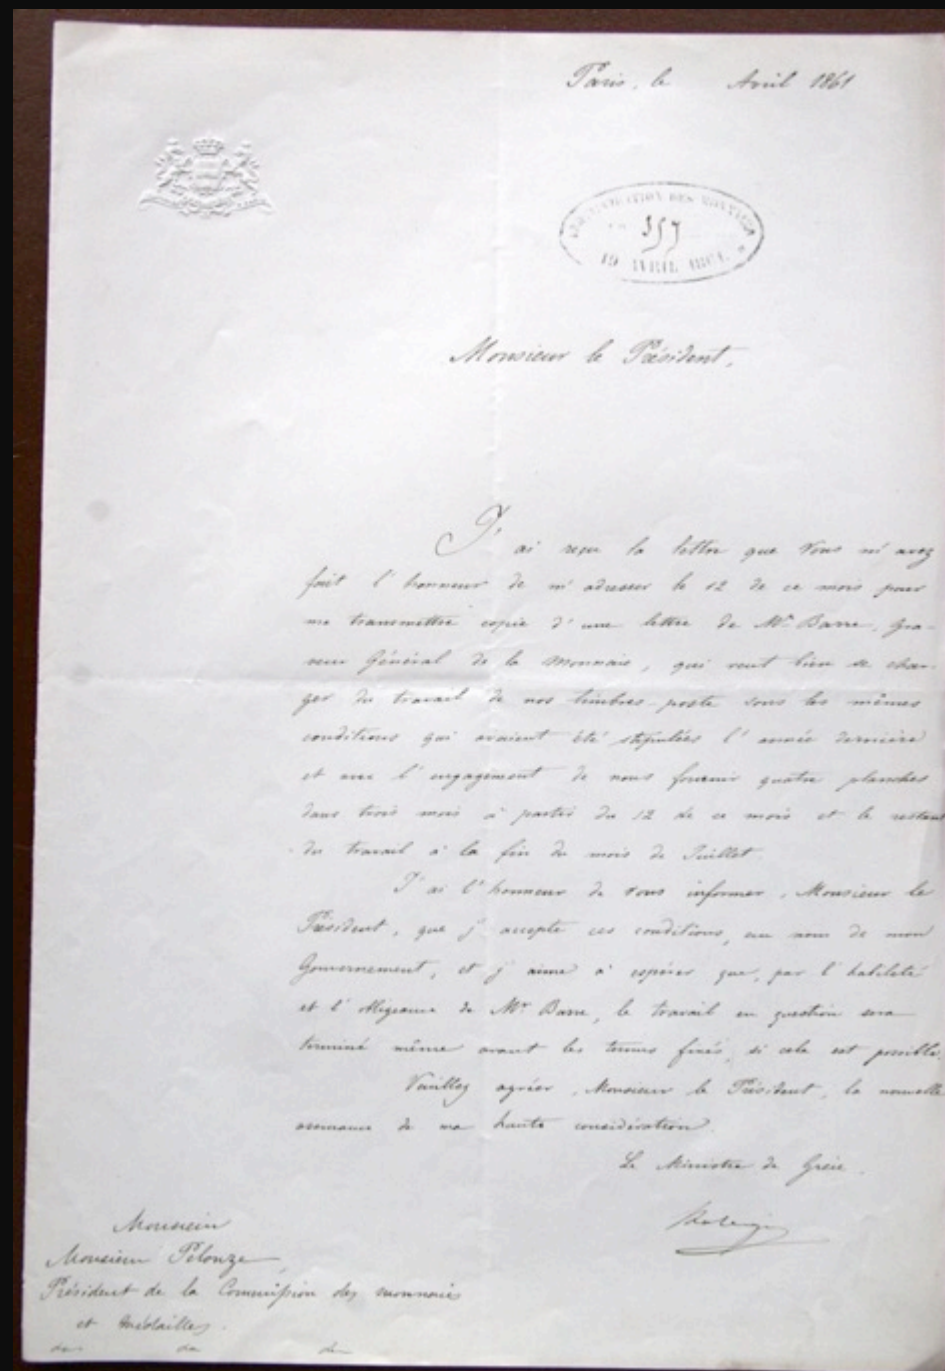 Paris, le Avril 1861
ADMINISTRATION DES MONNAIES
357
19 AVRIL 1861
Monsieur le Président,
J'ai reçu la lettre que Vous m'avez
fait l'honneur de m'adresser le 12 de ce mois pour
me transmettre copie d'une lettre de Mr. Barre, Gra-
veur Général de la Monnaie, qui veut bien se char-
ger du travail de nos timbres-poste sous les mêmes
conditions qui avaient été stipulées l'année dernière
et avec l'engagement de nous fournir quatre planches
dans trois mois à partir du 12 de ce mois et le restant
du travail à la fin du mois de Juillet.
J'ai l'honneur de vous informer, Monsieur le
Président, que j'accepte ces conditions, au nom de mon
Gouvernement, et j'aime à espérer que, par l'habileté
et l'obligeance de Mr Barre, le travail en question sera
terminé même avant les termes fixés, si cela est possible.
Veuillez agréer, Monsieur le Président, la nouvelle
assurance de ma haute considération.
Le Ministre de Grèce.
Monsieur
Monsieur Pelouze,
Président de la Commission des monnaies
et médailles.